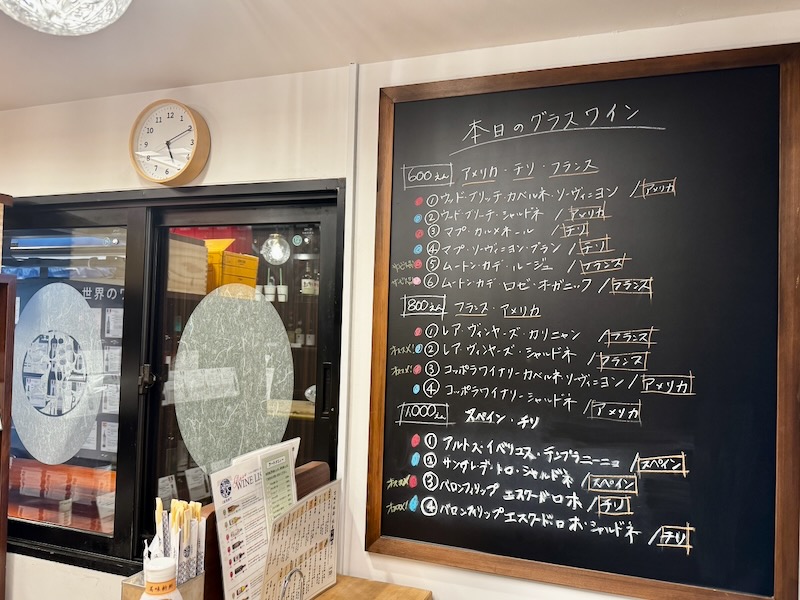 本日のグラスワイン
600えん アメリカ・チリ・フランス
① ウッド・ブリッヂ・カベルネ・ソーヴィニヨン /アメリカ
② ウッド・ブリーヂ・シャルドネ /アメリカ
③ マプ・カルメネール /チリ
④ マプ・ソーヴィニヨン・ブラン /チリ
⑤ ムートン・カデ・ルージュ /フランス
⑥ ムートン・カデ・ロゼ・オーガニック /フランス
800えん フランス・アメリカ
① レア・ヴィンヤーズ・カリニャン /フランス
オススメ! ② レア・ヴィンヤーズ・シャルドネ /フランス
オススメ! ③ コッポラワイナリーカベルネ・ソーヴィニヨン /アメリカ
④ コッポラワイナリーシャルドネ /アメリカ
1,000えん スペイン・チリ
① アルトス・イベリエス・テンプラニーニョ /スペイン
② サングレデ・トロ・シャルドネ /スペイン
オススメ! ③ バロンフィリップ エスクードロホ /チリ
オススメ! ④ バロンフィリップエスクードロホ・シャルドネ /チリ
世界のワ
WINE LIS
12
1
2
3
4
5
6
7
8
9
10
11